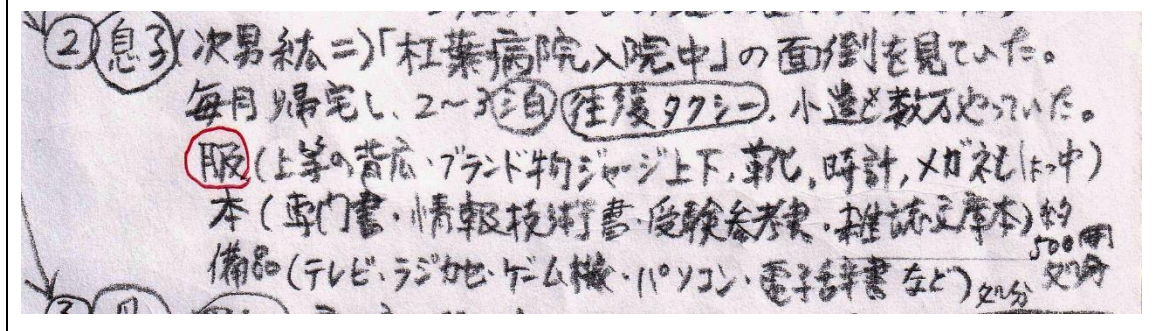 ②息子(次男紘二)「杠葉病院入院中」の面倒を見ていた。
毎月帰宅し、2〜3泊 往復タクシー、小遣も数万やっていた。
服(上等の背広・ブランド物ジャージ上下,靴,時計,メガネもしょっ中)
本(専門書・情報技術書・受験参考書・雑誌文庫本)約500冊処分
備品(テレビ・ラジカセ・ゲーム機・パソコン・電子辞書など)処分